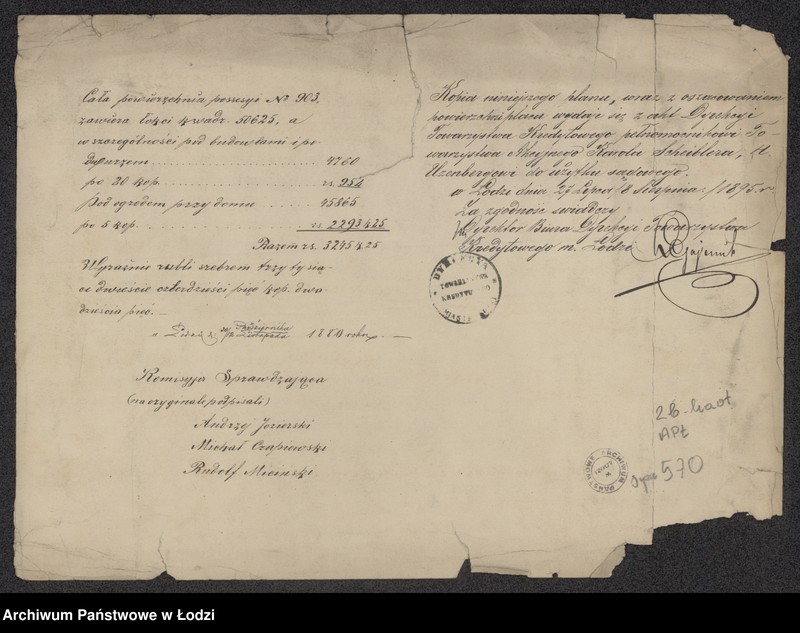 Cała powierzchnia possesyi № 903,
zawiera łokci kwadr. 50625, a
w szczególności pod budowlami i po
dwórzem 4760
po 20 kop. rs. 952
Pod ogrodem przy domu 45865
po 5 kop. rs 2293 k 25
Razem rs. 3245 k 25
Wyraźnie rubli srebrem trzy tysią-
ce dwieście czterdzieści pięć kop. dwa-
dzieścia pięć.—
Października
Listopada 1880 roku.
Komisyja Sprawdzająca
(na oryginale podpisali)
Andrzej Jeziorski
Michał Czapiewski
Rudolf Miciński
Kopia niniejszego planu, wraz z oszacowaniem
powierzchni placu wydaje się z akt Dyrekcji
Towarzystwa Kredytowego pełnomocnikowi To-
warzystwa Akcyjnego Karola Scheiblera,
Uzenbergowi do użytku sądowego.
w Łodzi dnia 27 Lipca /8 Sierpnia/ 1895 r.
Za zgodność świadczy
Dyrektor Biura Dyrekcji Towarzystwa
Kredytowego m. Łodzi
DYREKCYA
TOWARZYSTWA
KREDYTOWEGO
APŁ
570
PAŃSTWOWE ARCHIWUM
w
ŁODZI
Archiwum Państwowe w Łodzi